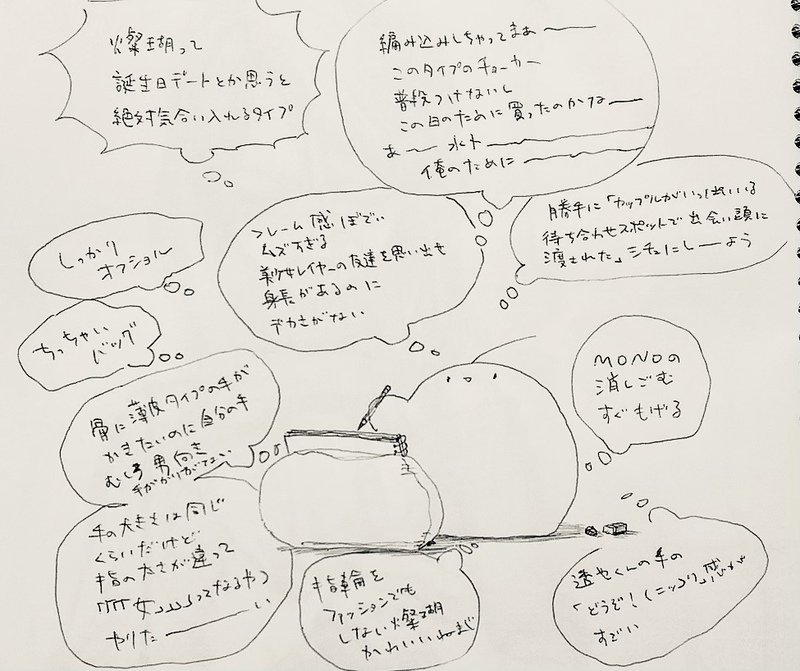 燦瑚って
誕生日デートとか思うと
絶対気合い入れるタイプ
編み込みしちゃってまあ〜
このタイプのチョーカー
普段つけないし
この日のために買ったのかな〜
あ〜
俺のために〜
勝手に「カップルがいっぱいいる
待ち合わせスポットで出会い頭に
渡された」シチュにしーよう
フレーム感
ムズすぎる
美少女レイヤーの友達を思い出せ
身長があるのに
デカさがない
しっかり
オフショル
ちっちゃい
バッグ
MONOの
消しごむ
すぐもげる
骨に薄皮タイプの手が
かきたいのに自分の手
むしろ男向き
手がかりがない
手の大きさは同じ
くらいだけど
指の太さが違って
ってなるやつ
やりたーーい
指輪を
ファッションでも
しない燦瑚
かわいいねまじ
透也くんの手の
「どうぞ!(ニッコリ)」感が
すごい